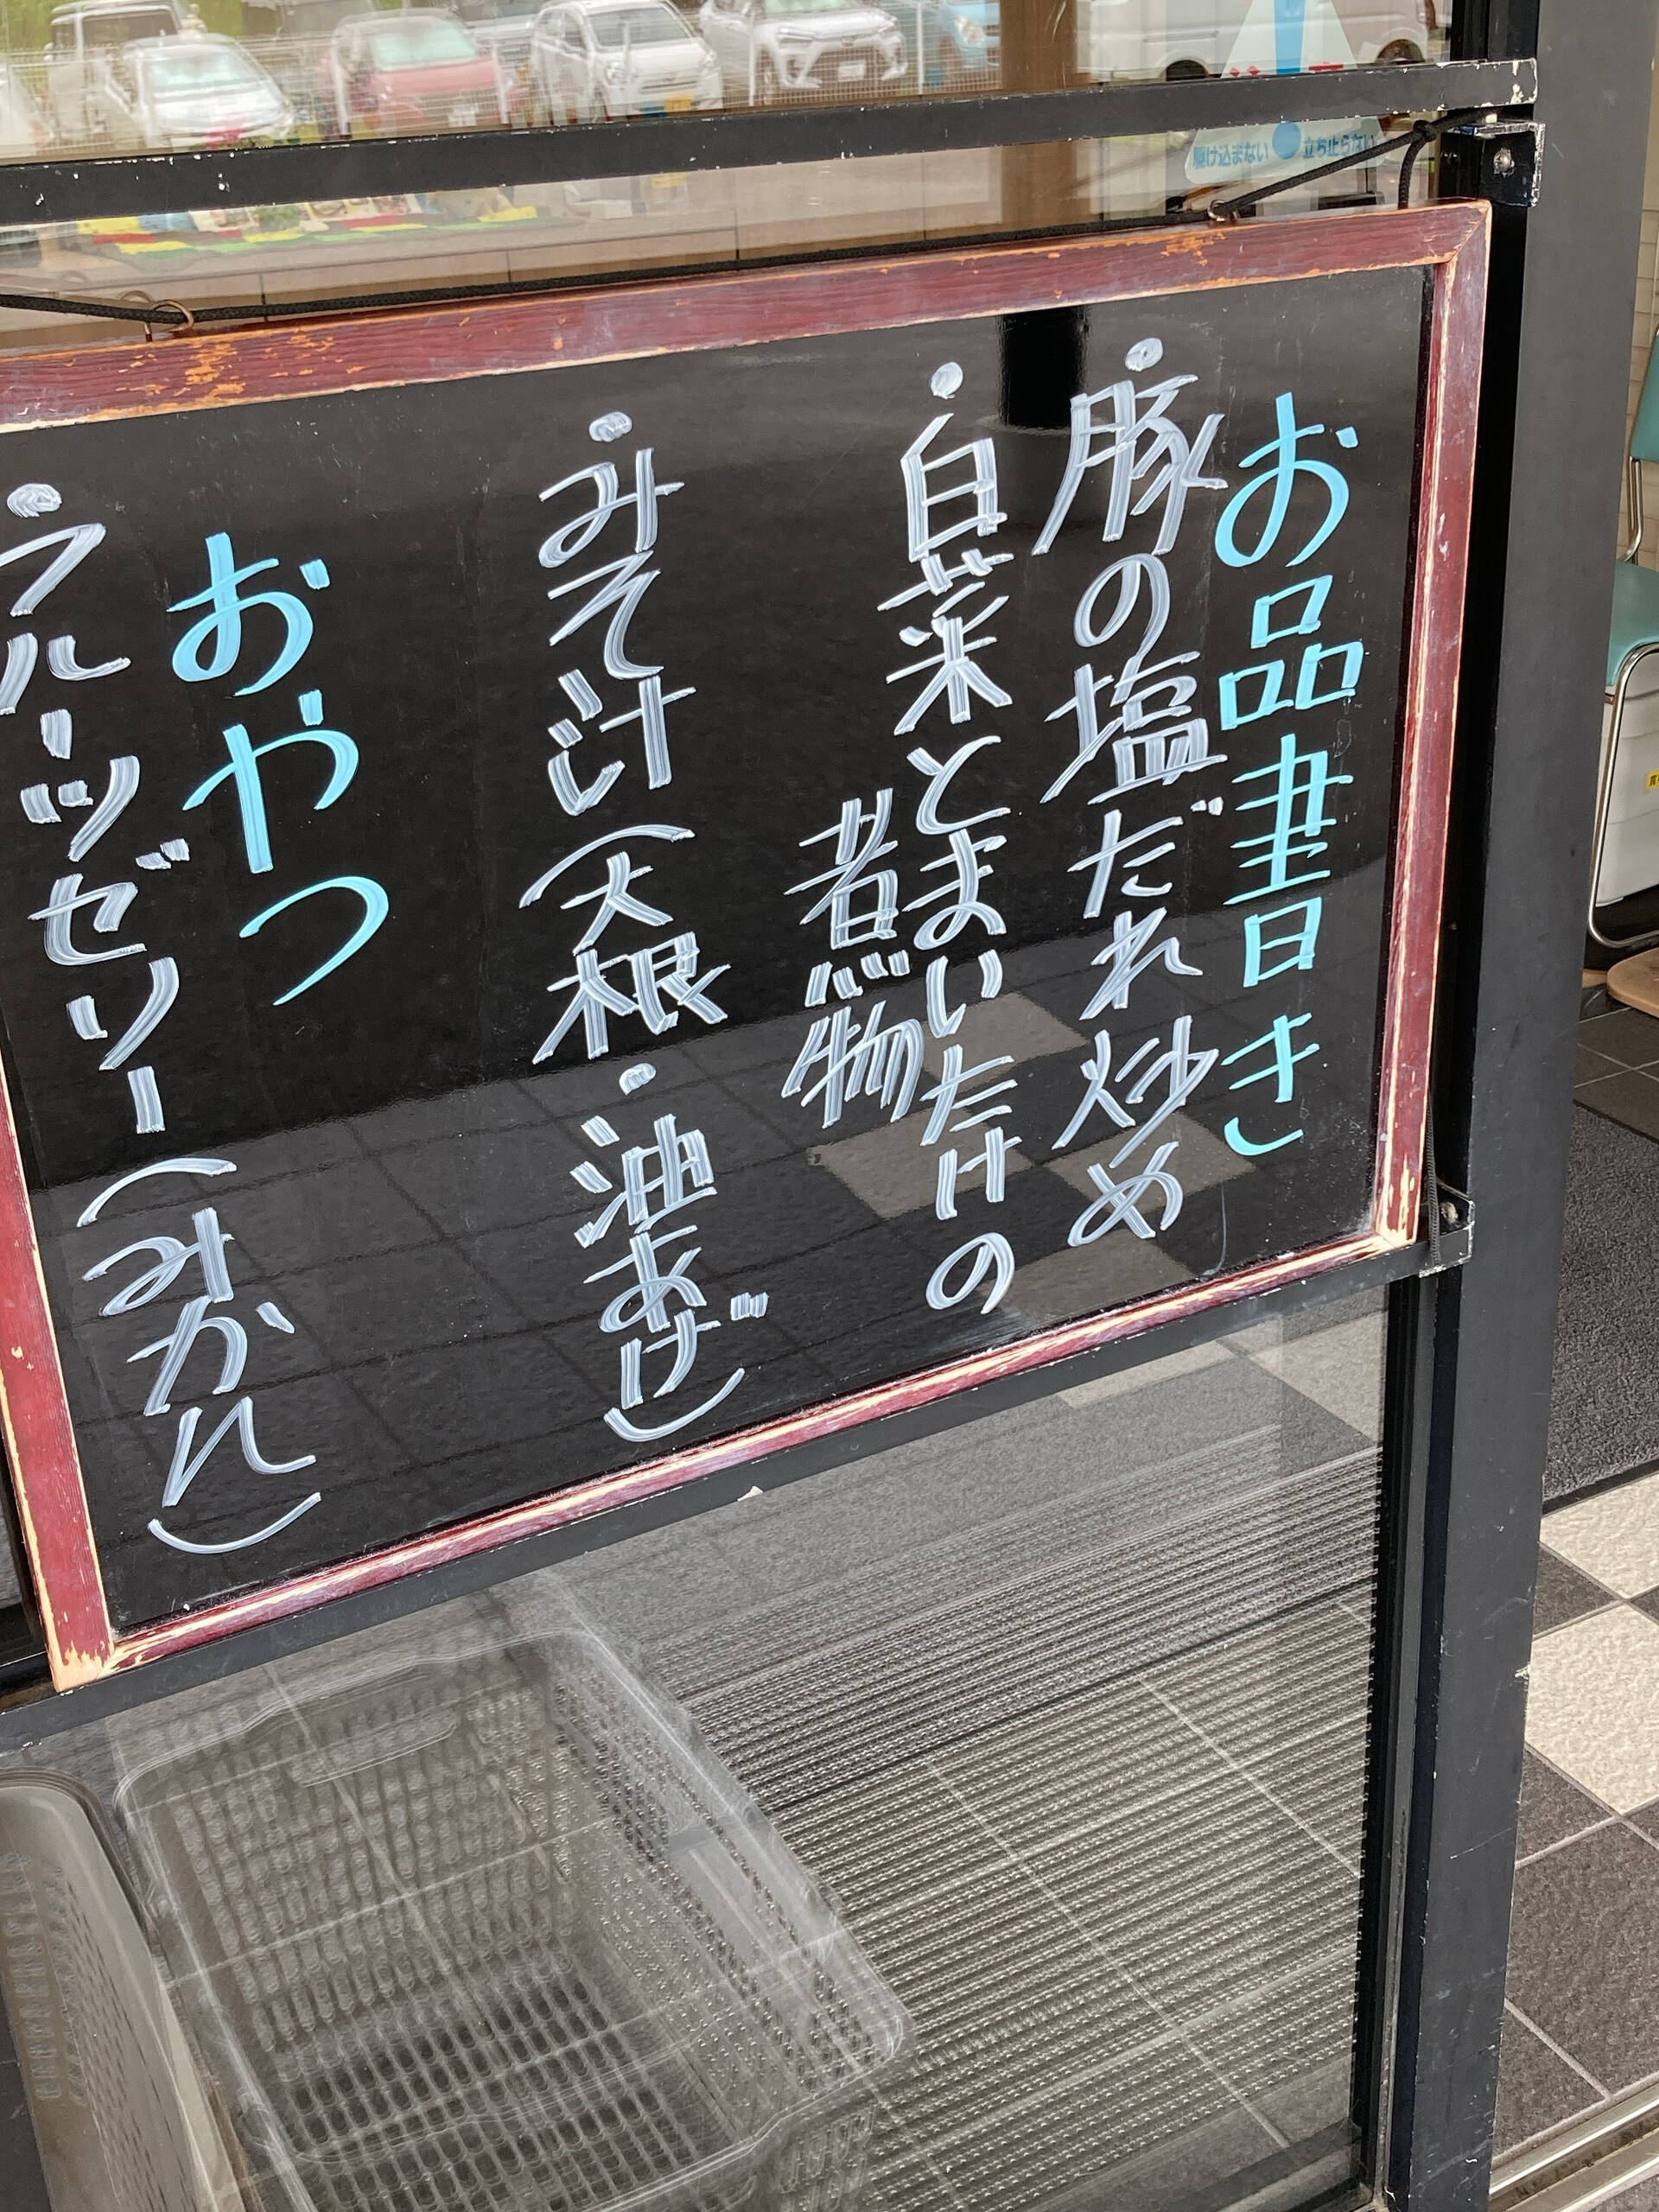 お品書き
・豚の塩だれ炒め
・白菜とまいたけの
煮物
・みそ汁(大根・油あげ)
おやつ
・フルーツゼリー(みかん)
駆け込まない
立ち止らない